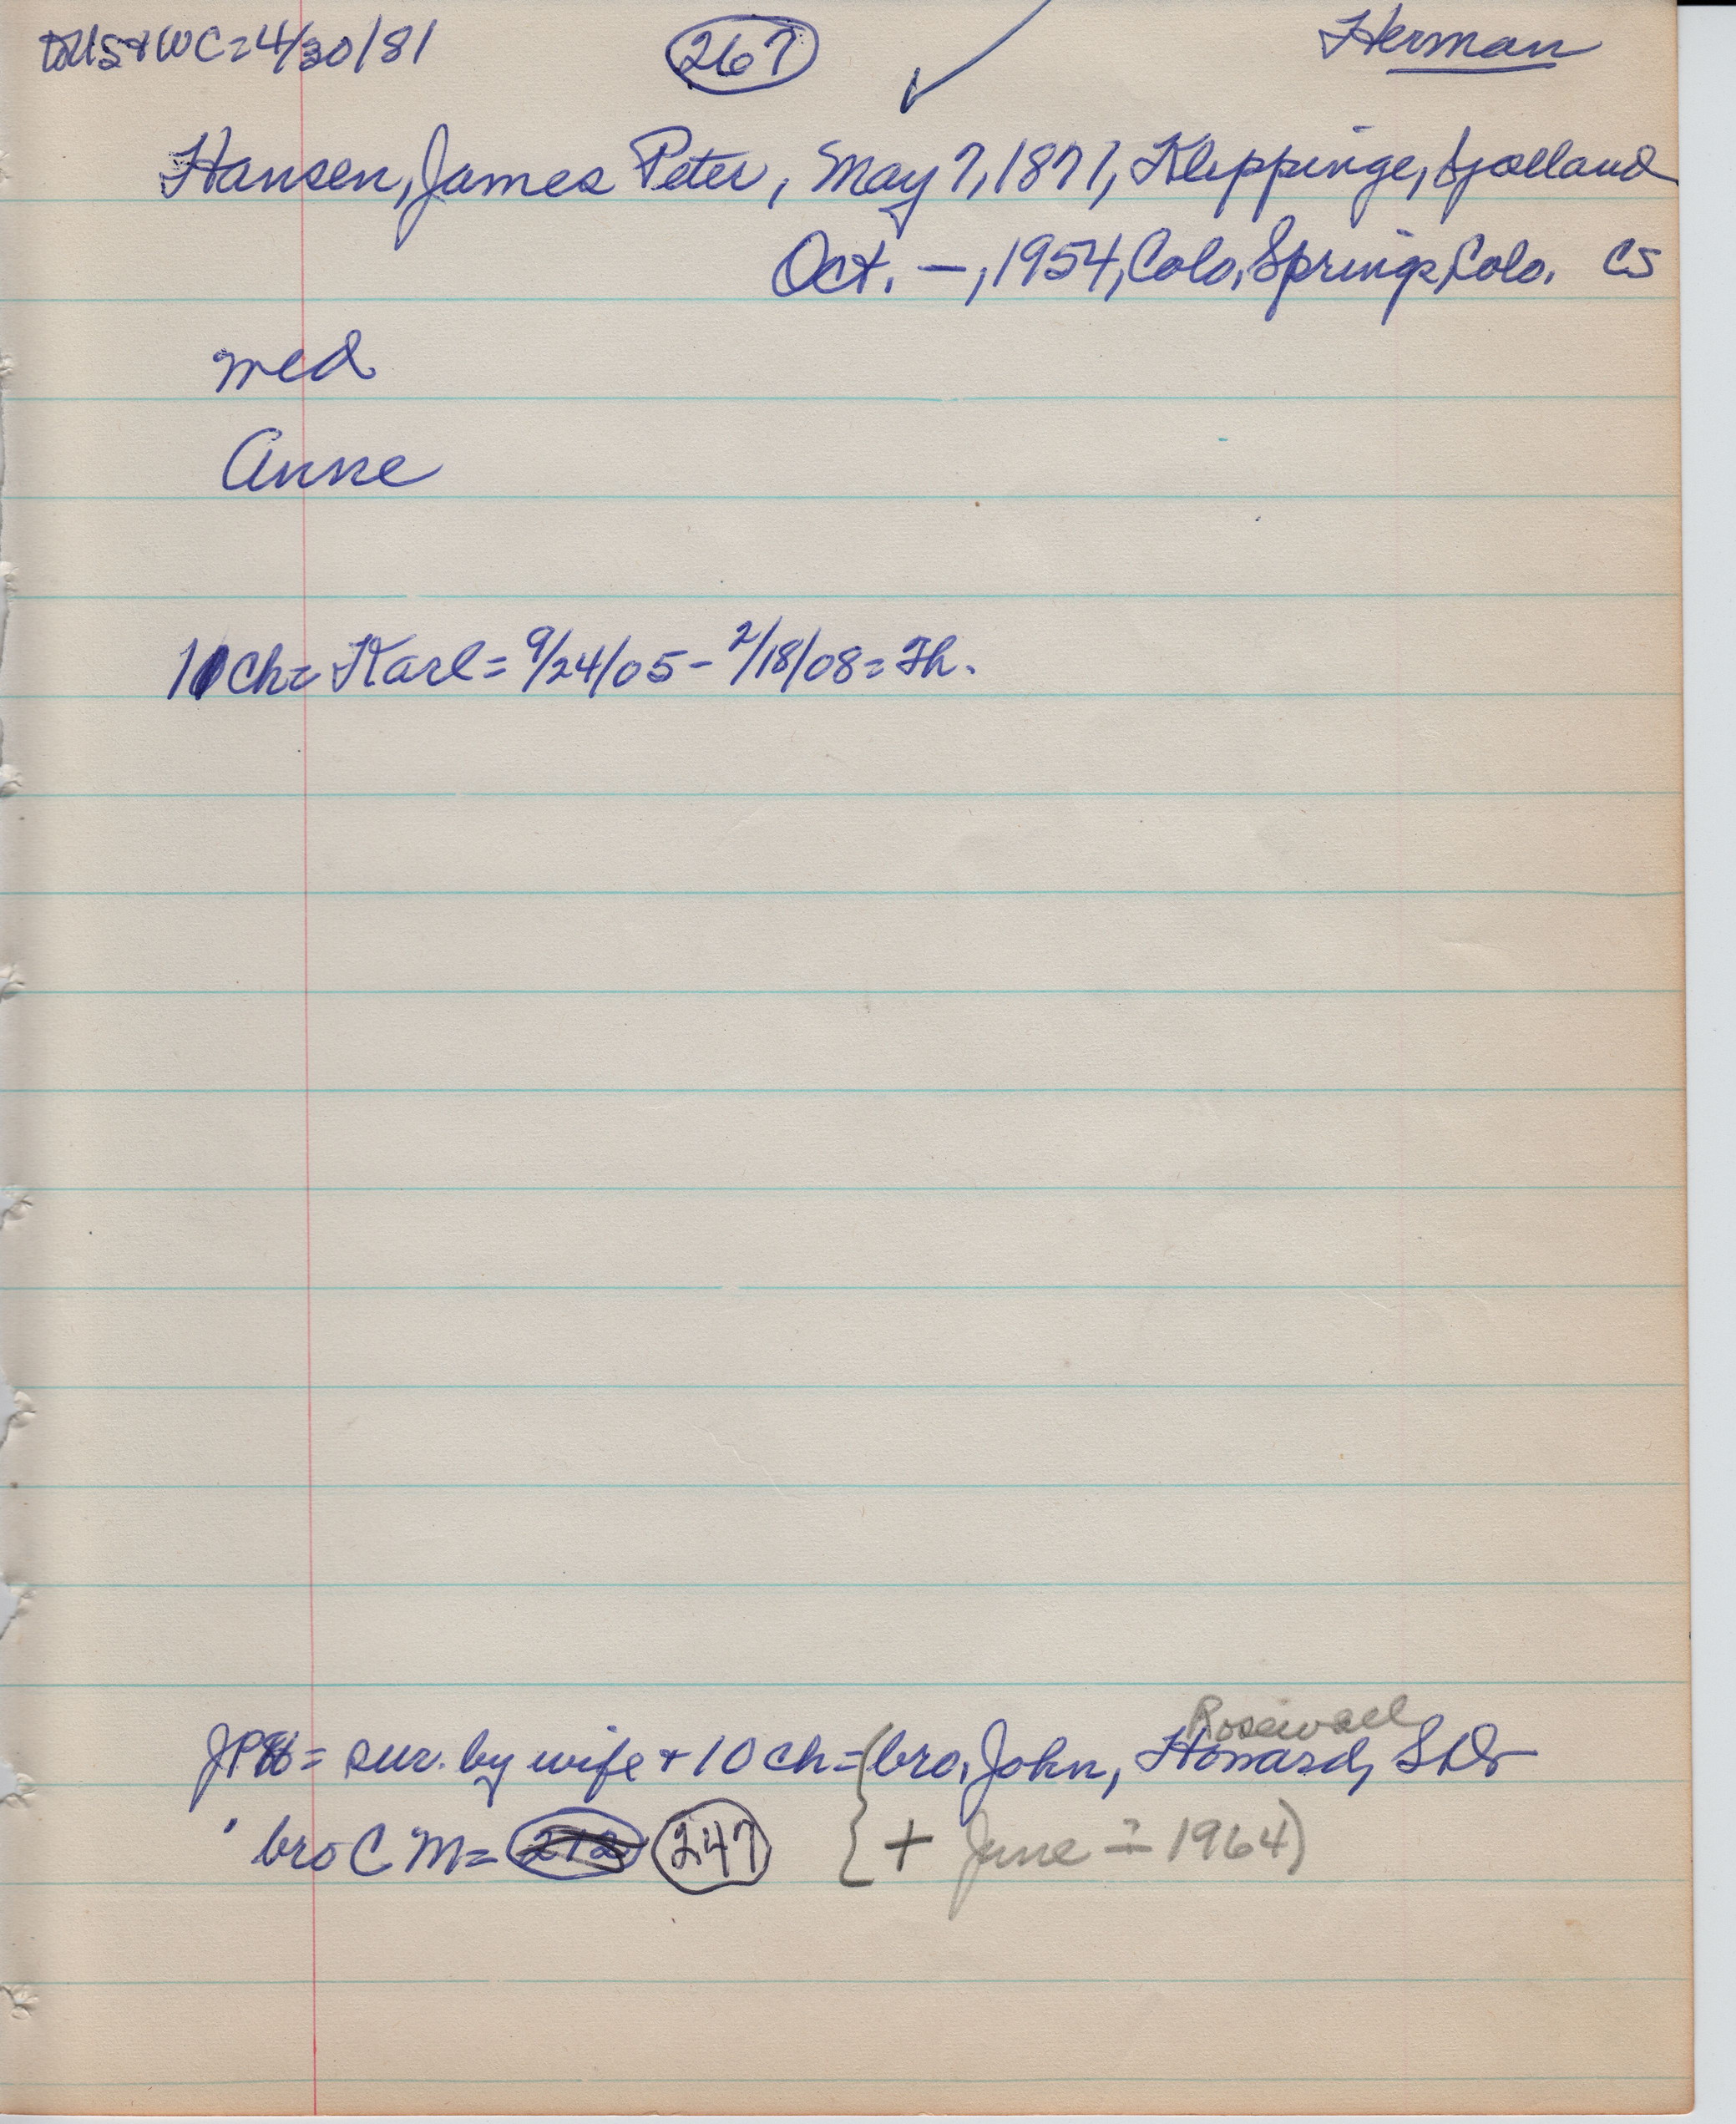 toUS+WC=4/30/81 267 ✓ Herman
Hansen, James Peter, May 7, 1871, Kleppinge, Sjælland
Oct. —, 1954, Colo. Springs, Colo. CS
med
Anne
10 Ch = Karl = 9/24/05 - 2/18/08 = Th.
Rosewell
JPH = sur. by wife + 10 ch = (bro. John, Howard, SD
" bro C M = 247 { + June ÷ 1964)